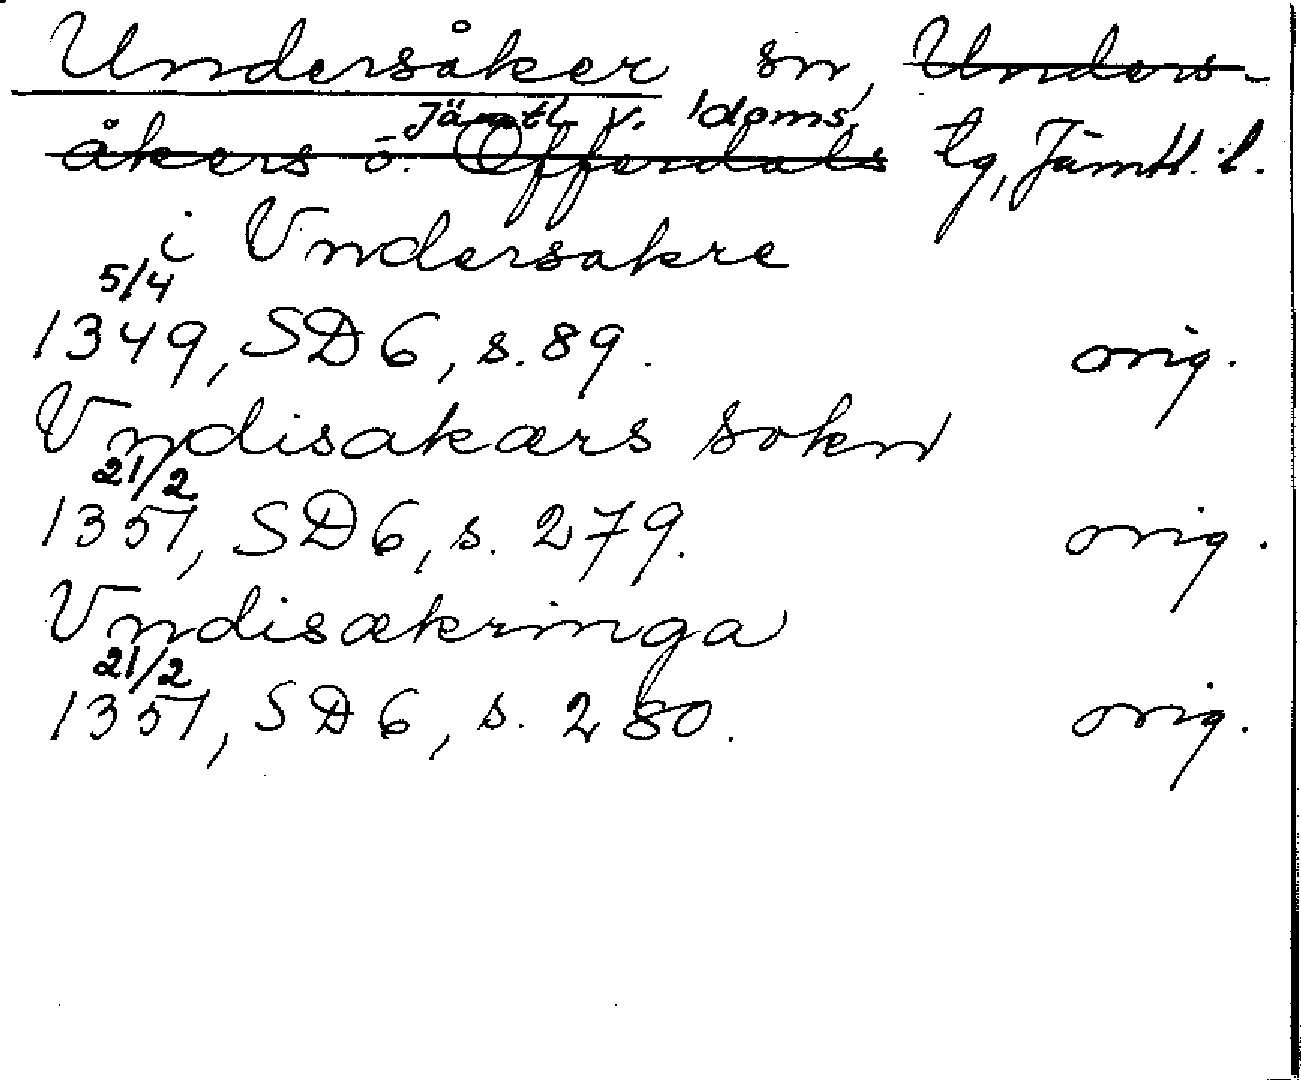 Undersåker sn, Unders-
Jämtl v. doms.
åkers o. Offerdals tg, Jämtl. l.
i Vndersakre
5/4
1349, SD 6, s. 89. orig.
Vndisakærs sokn
21/2
1357, SD 6, s. 279. orig.
Vndisækringa
21/2
1357, SD 6, s. 280. orig.